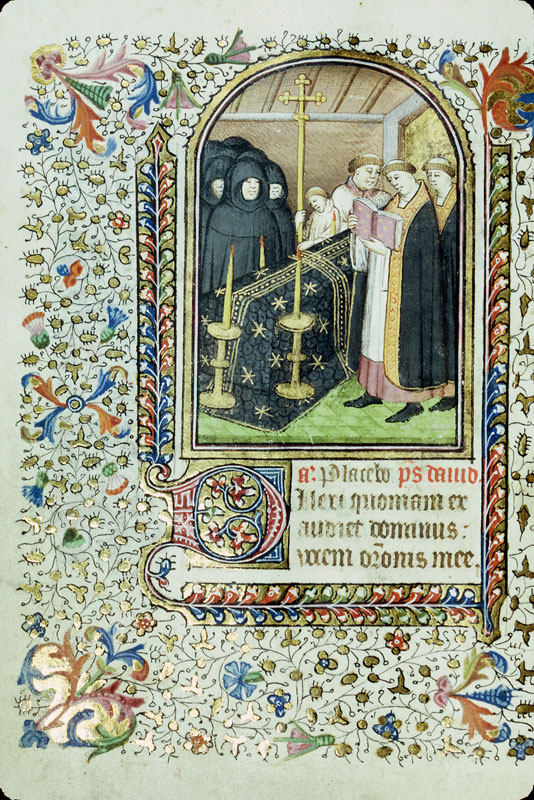 a͛. Placebo p̄s dauid.
Dilexi quoniam ex
audiet dominus:
uocem or̄onis mee.